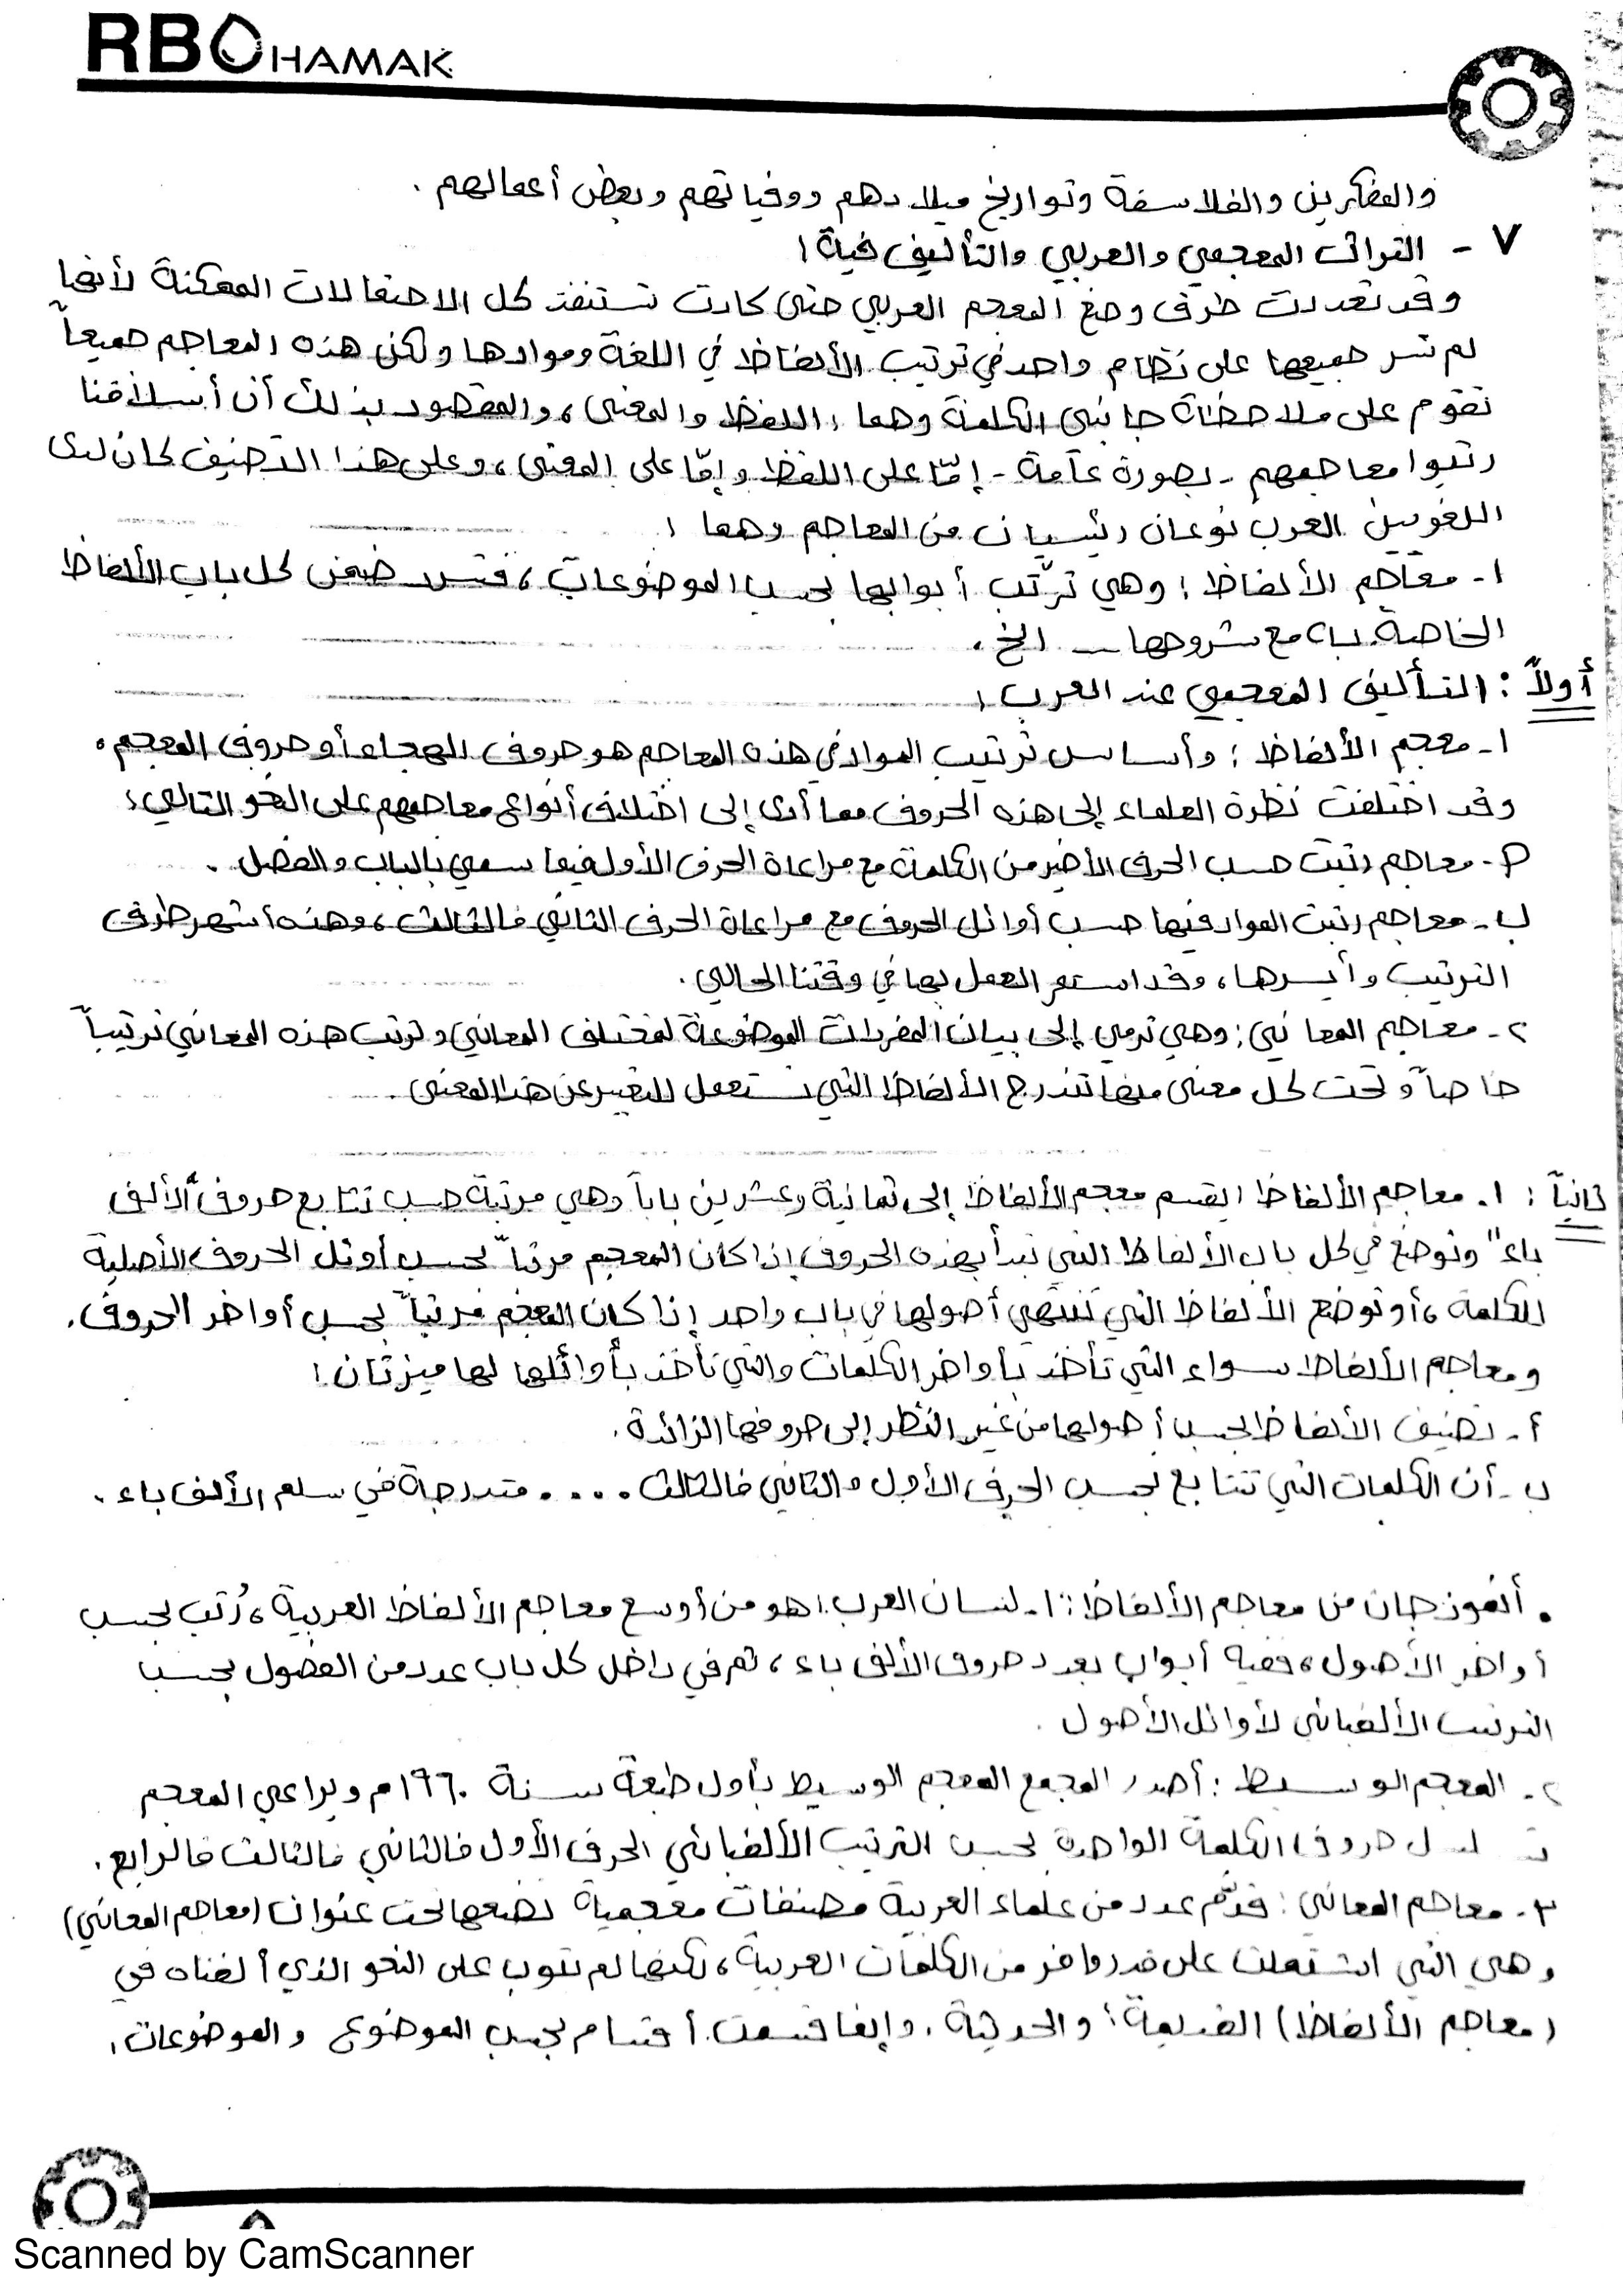 RBOHAMAK
والمفكرين والفلاسفة وتواريخ ميلادهم ووفياتهم وبعض أعمالهم .
٧ - التراث المعجمي والعربي والتأليف فية :
وقد تعددت طرق وضع المعجم العربي حتى كادت تستنفذ كل الاحتمالات الممكنة لأنها
لم تسر جميعها على نظام واحد في ترتيب الألفاظ في اللغة وموادها ولكن هذه المعاجم جميعاً
تقوم على ملاحظة جانبي الكلمة وهما : اللفظ والمعنى ، والمقصود بذلك أن أسلافنا
رتبوا معاجمهم - بصورة عامة - إمّا على اللفظ وإمّا على المعنى ، وعلى هذا التصنيف كان لدى
اللغويين العرب نوعان رئيسيان من المعاجم وهما :
١- معاجم الألفاظ : وهي ترتّب أبوابها بحسب الموضوعات ، فتسرد ضمن كل باب الألفاظ
الخاصة به مع شروحها ... الخ .
أولاً : التأليف المعجمي عند العرب :
١- معجم الألفاظ : وأساس ترتيب المواد في هذه المعاجم هو حروف الهجاء أو حروف المعجم .
وقد اختلفت نظرة العلماء إلى هذه الحروف مما أدى إلى اختلاف أنواع معاجمهم على النحو التالي :
م- معاجم رتبت حسب الحرف الأخير من الكلمة مع مراعاة الحرف الأول فيما سمي بالباب والفصل .
ب- معاجم رتبت المواد فيها حسب أوائل الحروف مع مراعاة الحرف الثاني فالثالث ، وهذه أشهر طرق
الترتيب وأيسرها ، وقد استمر العمل بها في وقتنا الحالي .
٢- معاجم المعاني : وهي ترمي إلى بيان المفردات الموضوعة لمختلف المعاني وترتب هذه المعاني ترتيباً
خاصاً وتحت كل معنى منها تندرج الألفاظ التي تستعمل للتعبير عن هذا المعنى .
ثانياً : ١. معاجم الألفاظ : يقسم معجم الألفاظ إلى ثمانية وعشرين باباً وهي مرتبة حسب تتابع حروف "الألف
باء" وتوضع في كل باب الألفاظ التي تبدأ بهذه الحروف إذا كان المعجم مرتباً بحسب أوئل الحروف الأصلية
للكلمة ، أو توضع الألفاظ التي تنتهي أصولها في باب واحد إذا كان المعجم مرتباً بحسب أواخر الحروف .
ومعاجم الألفاظ سواء التي تأخذ بأواخر الكلمات والتي تأخذ بأوائلها لها ميزتان :
أ- تصنيف الألفاظ بحسب أصولها من غير النظر إلى حروفها الزائدة .
ب- أن الكلمات التي تتابع بحسب الحرف الأول والثاني فالثالث .... متدرجة في سلم الألف باء .
• أنموذجان من معاجم الألفاظ : ١- لسان العرب : هو من أوسع معاجم الألفاظ العربية ، رُتب بحسب
أواخر الأصول ، ففيه أبواب بعدد حروف الألف باء ، ثم في داخل كل باب عدد من الفصول بحسب
الترتيب الألفبائي لأوائل الأصول .
٢- المعجم الوسيط : أصدر المجمع المعجم الوسيط بأول طبعة سنة ١٩٦٠م ويراعي المعجم
حروف الكلمة الواحدة بحسب الترتيب الألفبائي الحرف الأول فالثاني فالثالث فالرابع .
٣- معاجم المعاني : قدّم عدد من علماء العربية مصنفات معجمية نضعها تحت عنوان (معاجم المعاني)
وهي التي اشتملت على قدر وافر من الكلمات العربية ، لكنها لم تبوب على النحو الذي ألفناه في
(معاجم الألفاظ) القديمة والحديثة . وإنما قسمت أقسام بحسب الموضوع والموضوعات .
Scanned by CamScanner